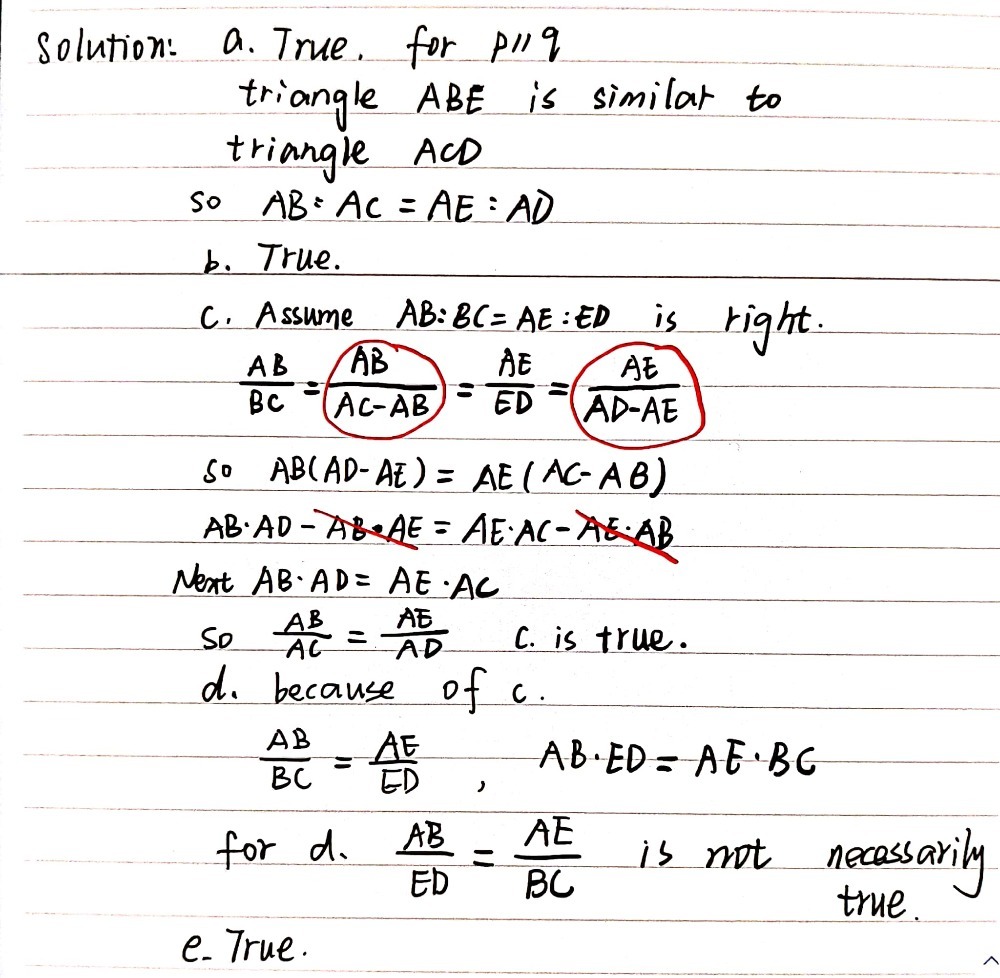 Solution: a. True. for p//q
triangle ABE is similar to
triangle ACD
so AB:AC = AE:AD
b. True.
C. Assume AB:BC = AE:ED is right.
AB/BC = AB/(AC-AB) = AE/ED = AE/(AD-AE)
so AB(AD-AE) = AE(AC-AB)
AB·AD - AB·AE = AE·AC - AE·AB
Next AB·AD = AE·AC
So AB/AC = AE/AD C. is true.
d. because of c.
AB/BC = AE/ED , AB·ED = AE·BC
for d. AB/ED = AE/BC is not necessarily
true.
e. True.